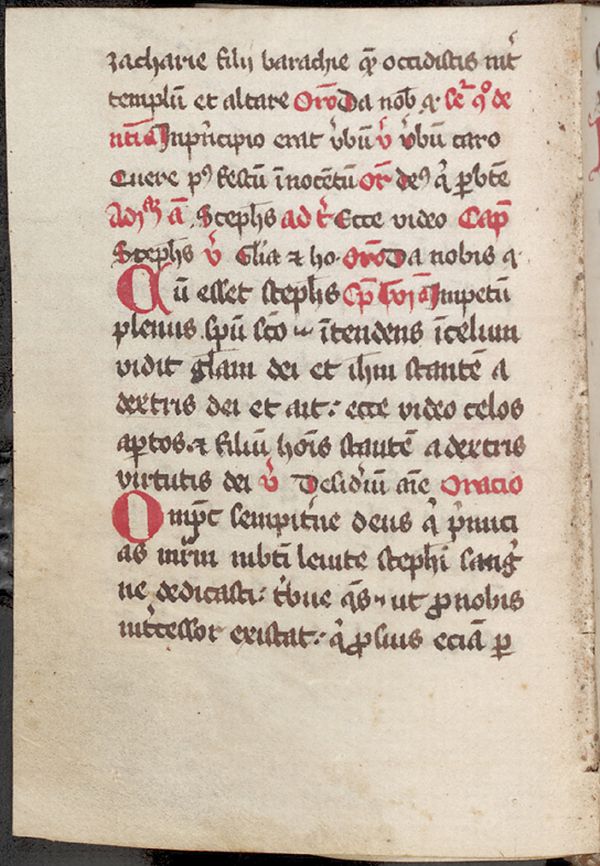 zacharie filii barachie qͫ occidistis int̄
templū et altare Oro Da nob̄ q̄ Sc̄r q̊ de
nti ā In prīcipio erat v̄bū v̄ v̄bū caro
Cuere p9 festū īnocētū Or̄ de9 q̄ p̄btē
ā Stephs ad t̄ Ecce video Cap̄
Stephs v̄ Elia ⁊ ho. Oro Da nobis q̄
Cū esset stephs Impetū
plenus spū sc̄o ītendens ī celum
vidit gl̄am dei et ihm stantē a
dextris dei et ait: ecce video celos
ap̄tos ⁊ filiū hoīs stantē a dextris
virtutis dei v̄ Desid̓iū aīe Oracio
Omp̄c sempit̓ne deus q̄ p̓mici
as mr̄m in bt̄i leuite stephi sang̓
ne dedicasti: t̓bue q̄s ut ꝓ nobis
int̓cessor existat: q̄ ꝓ suis eciā ꝑ